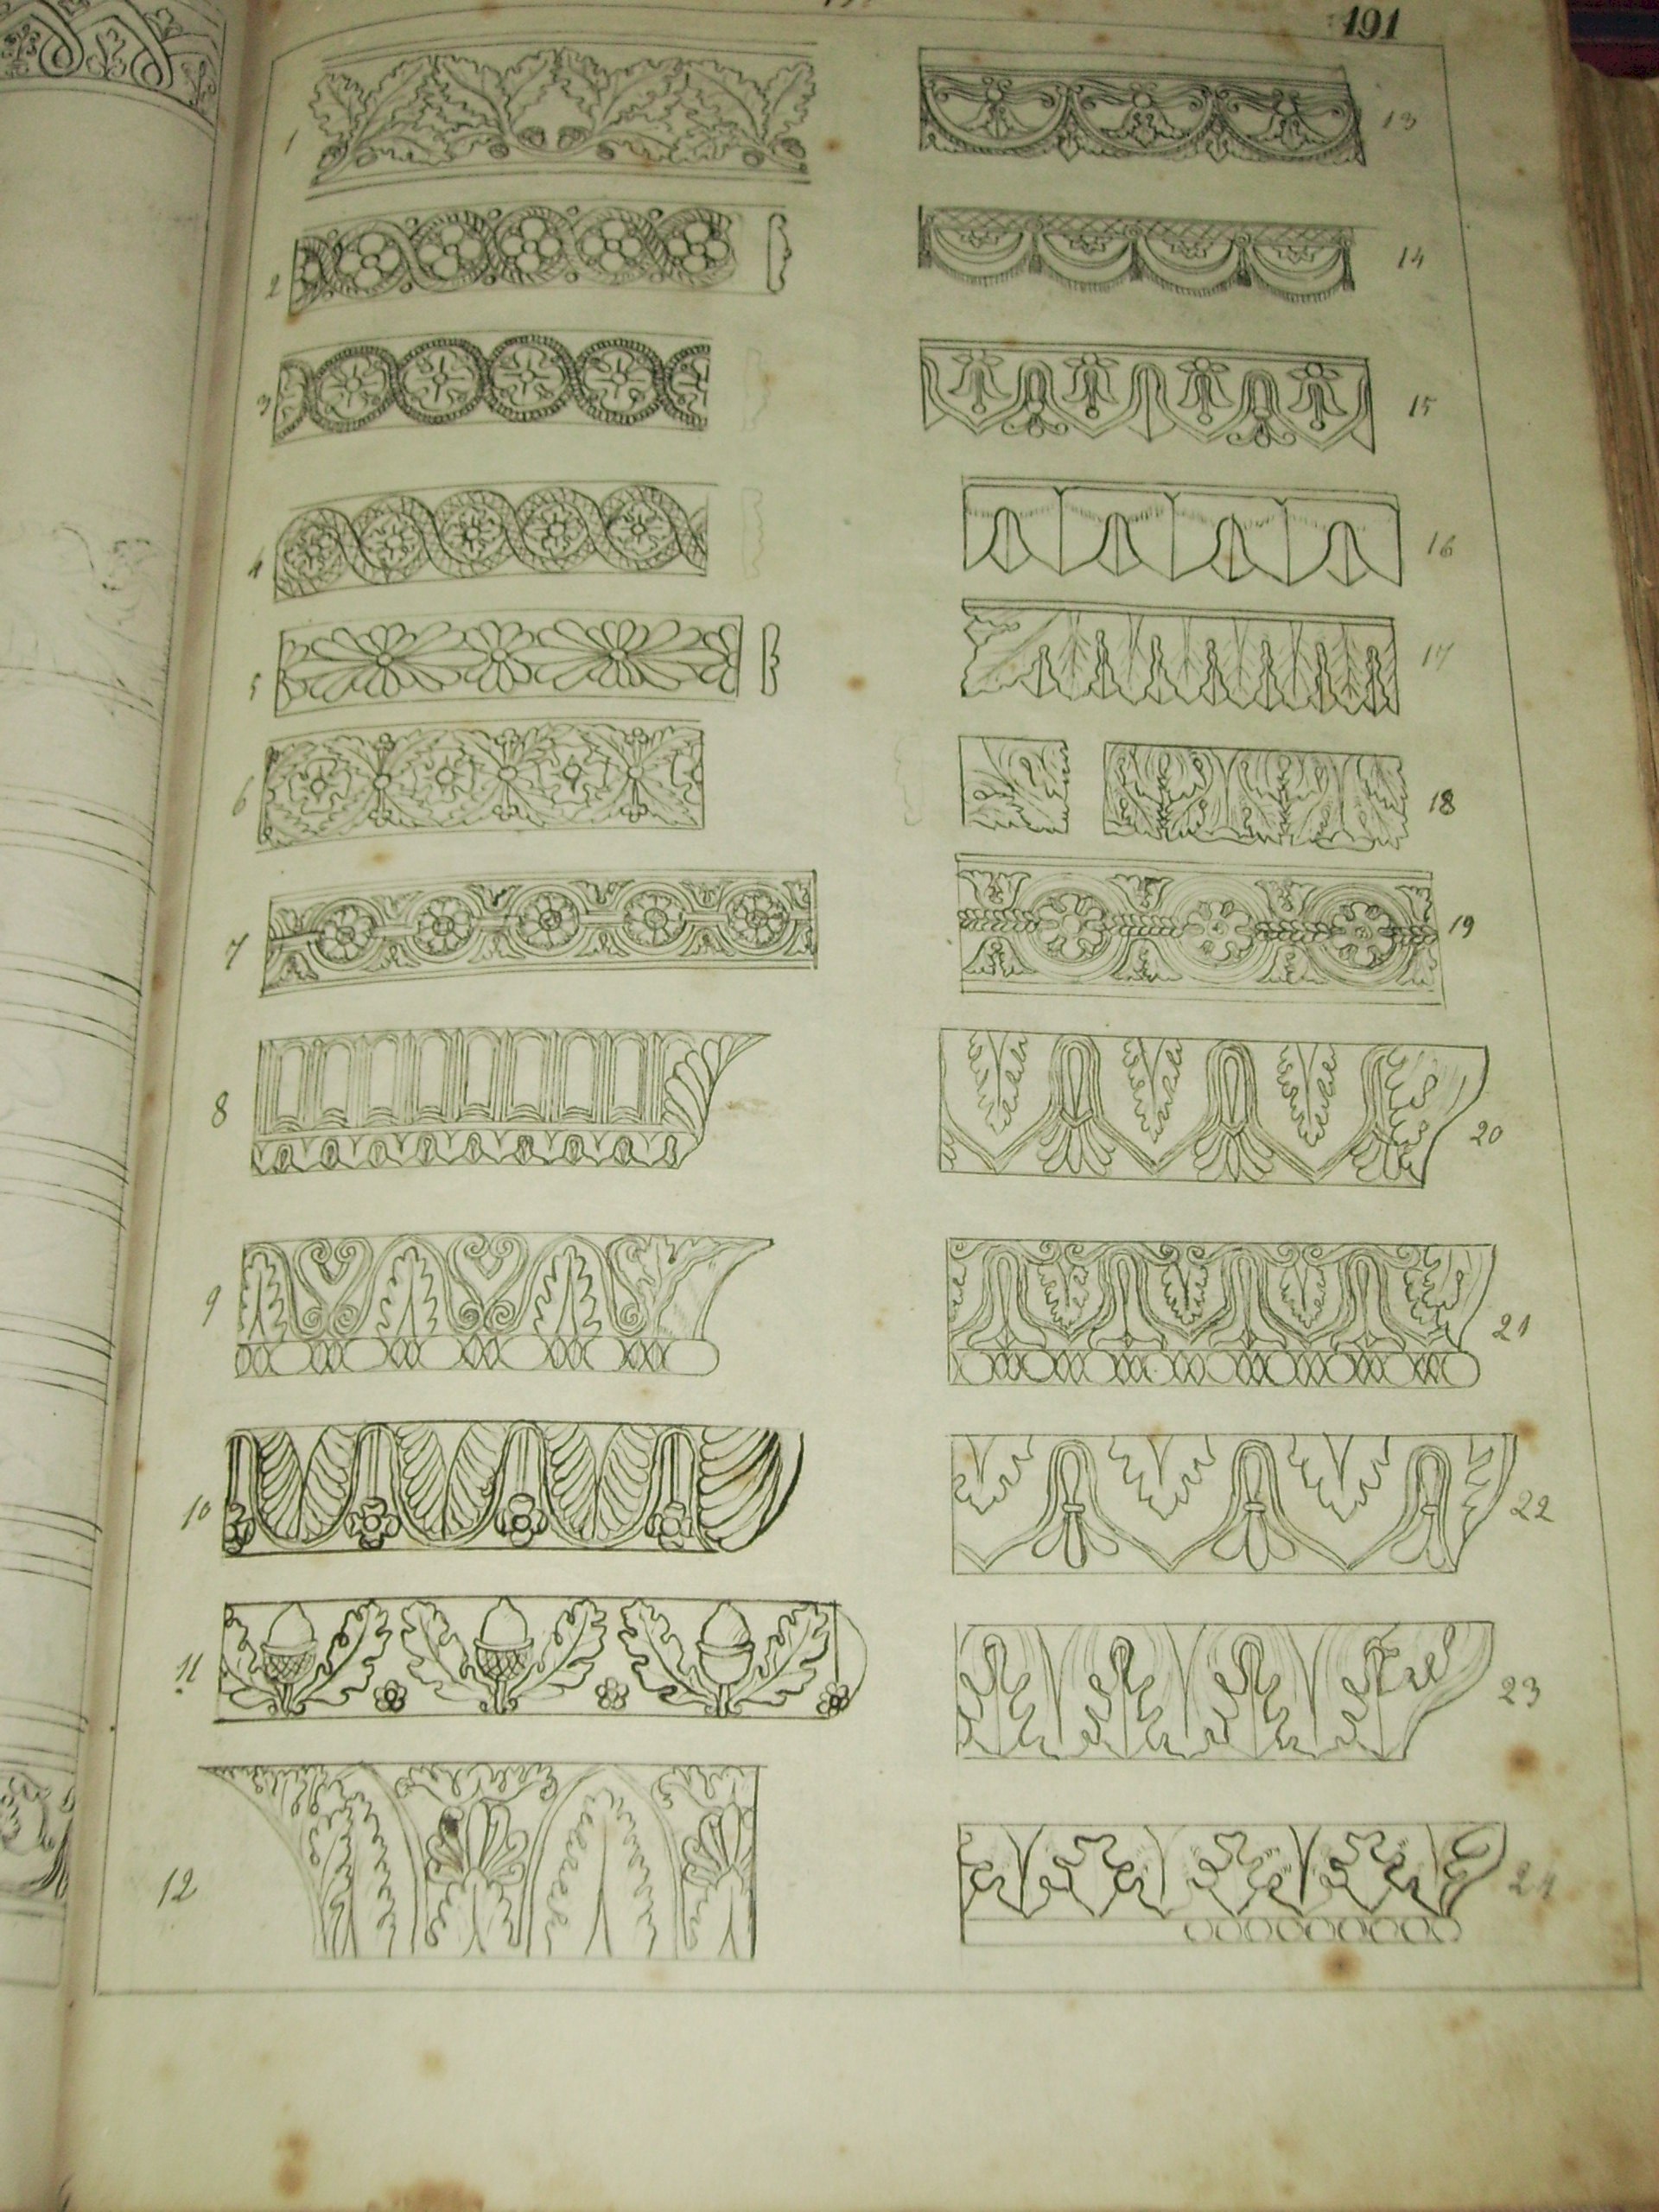 191
1
2
3
4
5
6
7
8
9
10
11
12
13
14
15
16
17
18
19
20
21
22
23
24